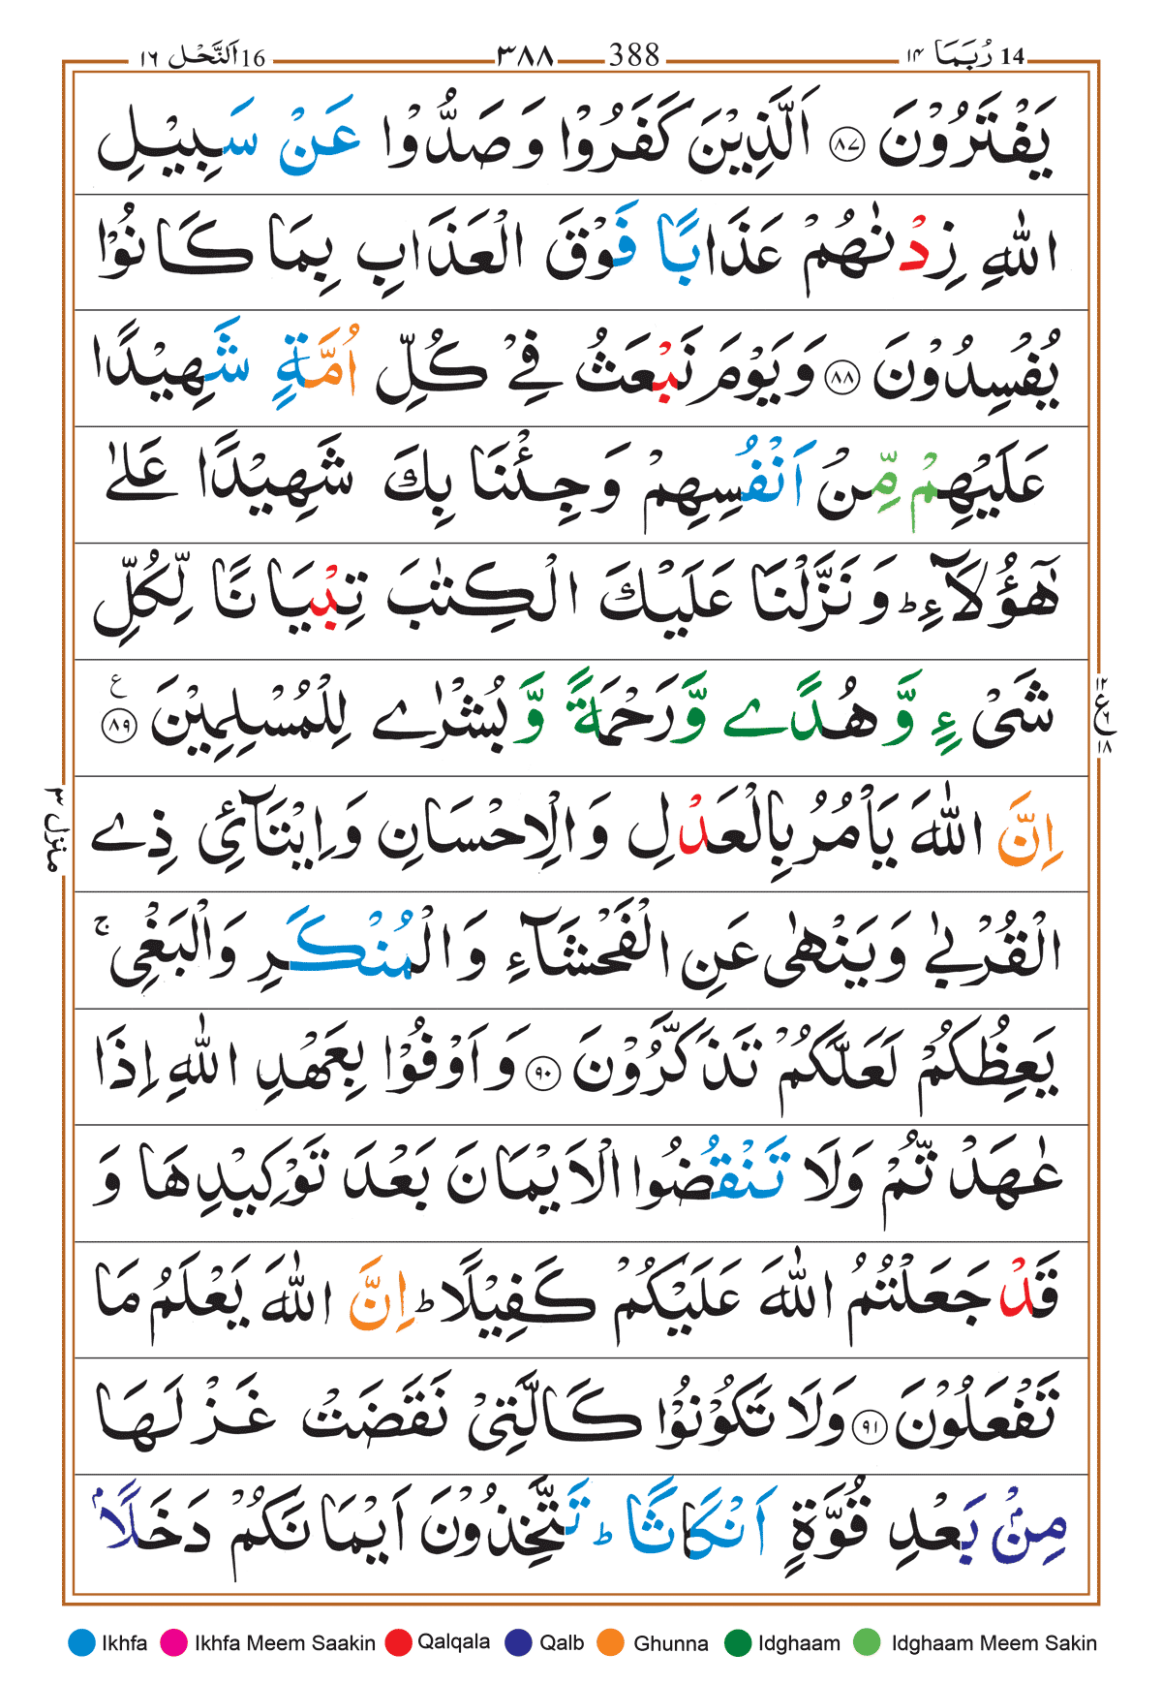 14 رُبَمَا ١٤ 388 ٣٨٨ 16 اَلنَّحْل ١٦
يَفْتَرُوْنَ ﴿٨٧﴾ اَلَّذِيْنَ كَفَرُوْا وَصَدُّوْا عَنْ سَبِيْلِ
اللّٰهِ زِدْنٰهُمْ عَذَابًا فَوْقَ الْعَذَابِ بِمَا كَانُوْا
يُفْسِدُوْنَ ﴿٨٨﴾ وَيَوْمَ نَبْعَثُ فِيْ كُلِّ اُمَّةٍ شَهِيْدًا
عَلَيْهِمْ مِّنْ اَنْفُسِهِمْ وَجِئْنَا بِكَ شَهِيْدًا عَلٰى
هٰٓؤُلَآءِ ؕ وَنَزَّلْنَا عَلَيْكَ الْكِتٰبَ تِبْيَانًا لِّكُلِّ
شَيْءٍ وَّهُدًى وَّرَحْمَةً وَّبُشْرٰى لِلْمُسْلِمِيْنَ ﴿٨٩﴾ ع
١٢ ع ٦ ١٨
اِنَّ اللّٰهَ يَاْمُرُ بِالْعَدْلِ وَالْاِحْسَانِ وَاِيْتَآئِ ذِى
منزل ٣
الْقُرْبٰى وَيَنْهٰى عَنِ الْفَحْشَآءِ وَالْمُنْكَرِ وَالْبَغْيِ ۚ
يَعِظُكُمْ لَعَلَّكُمْ تَذَكَّرُوْنَ ﴿٩٠﴾ وَاَوْفُوْا بِعَهْدِ اللّٰهِ اِذَا
عٰهَدْتُّمْ وَلَا تَنْقُضُوا الْاَيْمَانَ بَعْدَ تَوْكِيْدِهَا وَ
قَدْ جَعَلْتُمُ اللّٰهَ عَلَيْكُمْ كَفِيْلًا ؕ اِنَّ اللّٰهَ يَعْلَمُ مَا
تَفْعَلُوْنَ ﴿٩١﴾ وَلَا تَكُوْنُوْا كَالَّتِيْ نَقَضَتْ غَزْلَهَا
مِنْۢ بَعْدِ قُوَّةٍ اَنْكَاثًا ؕ تَتَّخِذُوْنَ اَيْمَانَكُمْ دَخَلًاۢ
Ikhfa Ikhfa Meem Saakin Qalqala Qalb Ghunna Idghaam Idghaam Meem Sakin